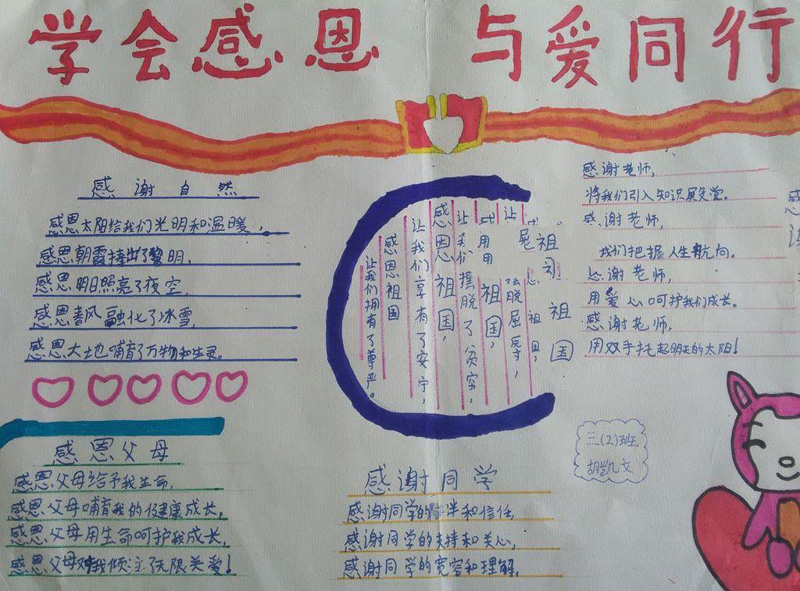 学会感恩 与爱同行
感谢自然
感恩太阳给我们光明和温暖,
感恩朝霞捧出了黎明,
感恩明日照亮了夜空,
感恩春风融化了冰雪,
感恩大地哺育了万物和生灵。
感恩父母
感恩父母给予我生命,
感恩父母哺育我的健康成长,
感恩父母用生命呵护我成长,
感恩父母对我倾注了无限关爱!
祖国
祖国,
让
祖国,
摆脱屈辱,
祖国,
让我们摆脱了贫穷,
感恩祖国,
让我们享有了安宁,
感恩祖国
让我们拥有了尊严。
感谢同学
感谢同学的伴和信任,
感谢同学的支持和关心,
感谢同学的宽容和理解,
感谢老师,
将我们引入知识殿堂。
感谢老师,
我们把握人生航向。
感谢老师,
用爱心呵护我们成长。
感谢老师,
用双手托起明天的太阳!
三(2)班
胡凯文
感
谢